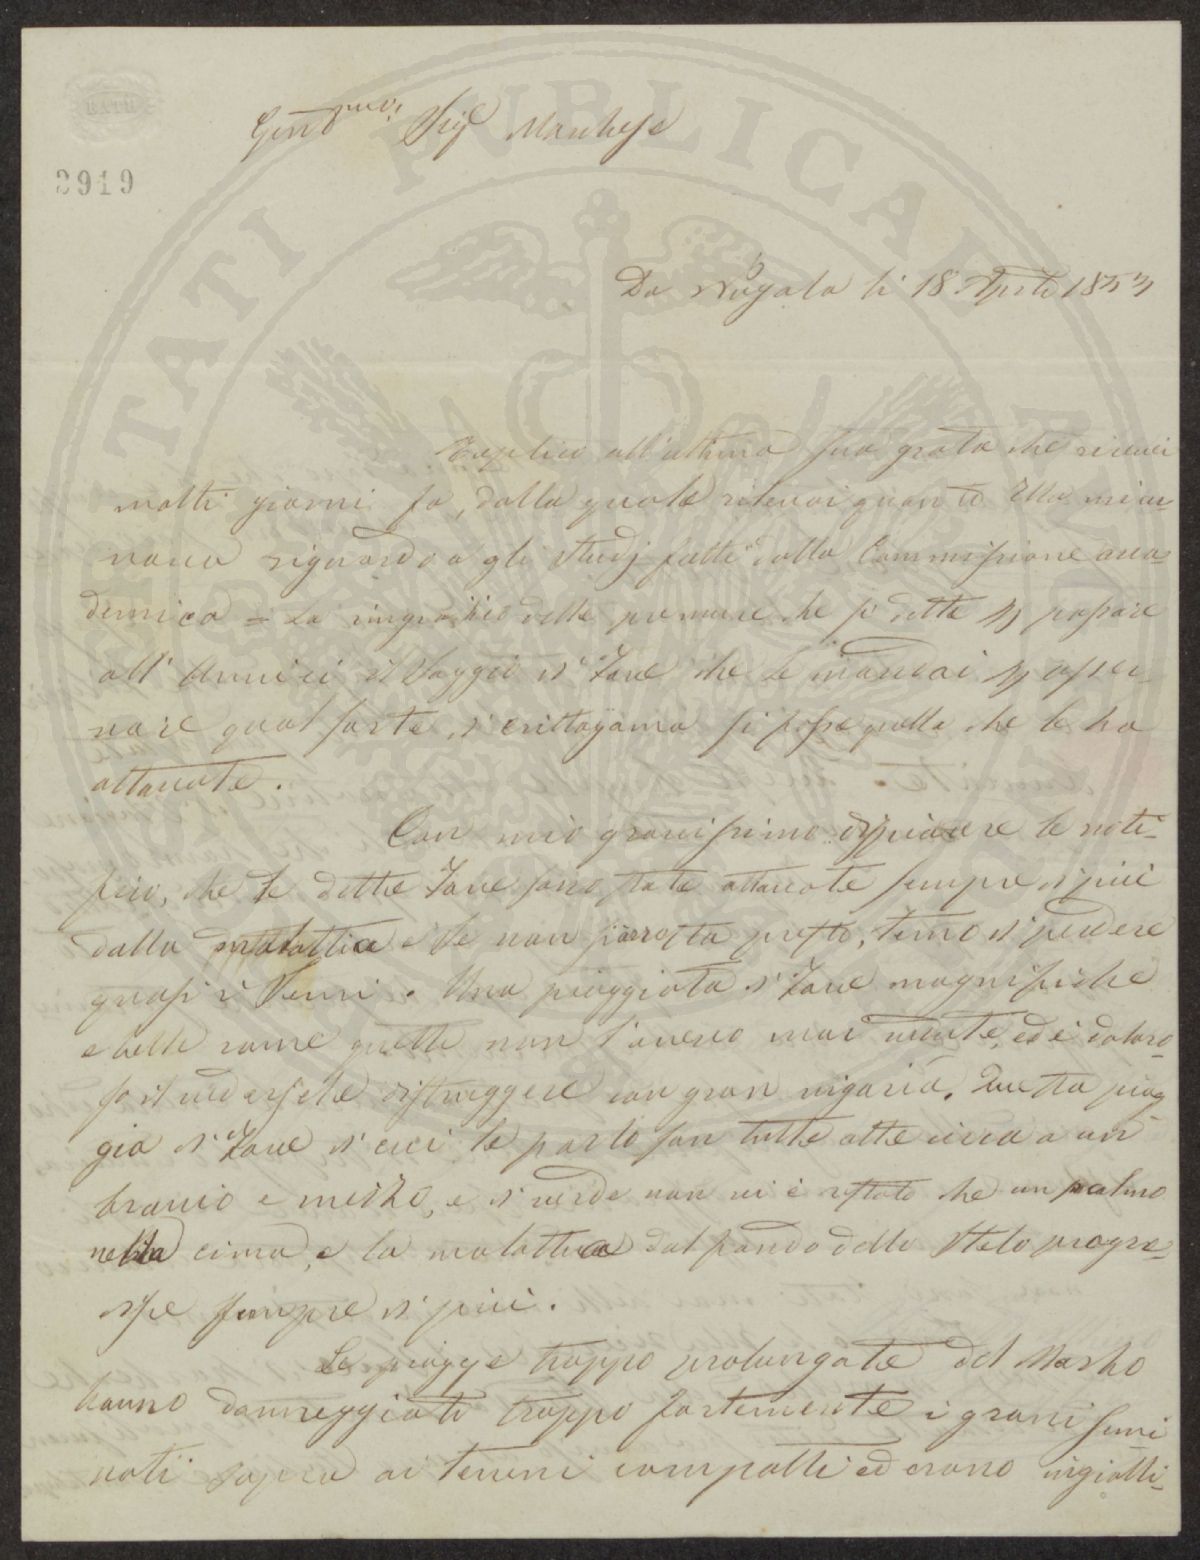 BATH
2919
Gent.mo Sig Marchese
Da Nugola li 18 Aprile 1853
Replico all'ultima sua grata che ricevei
molti giorni fa, dalla quale rilevai quanto Ella mi ac-
cennava riguardo a gli studj fatti dalla Commissione acca-
demica = La ringrazio delle premure che si dette p passare
all' Amici il Saggio di Fave che le mandai p osser-
vare qual sorte di crittogama si fosse quella che le ha
attaccate.
Con mio gravissimo dispiacere le noti-
fico, che le dette Fave sono state attaccate sempre di più
dalla malattia e se non si arresta presto, temo di perdere
quasi i Semi. Una piaggiata di Fave magnifiche
e belle come quelle non l'avevo mai avute, ed è doloro-
so il vedersele distruggere con gran vigoria. Questa piag
gia di Fave di cui le parlo son tutte alte circa a un
braccio e mezzo, e di verde non vi è restato che un palmo
nella cima, e la malattia dal fondo dello Stelo progre-
disce sempre di più.
Le piogge troppo prolungate del Marzo
hanno danneggiati troppo fortemente i grani semi
nati sopra ai terreni compatti ed erano ingialli-